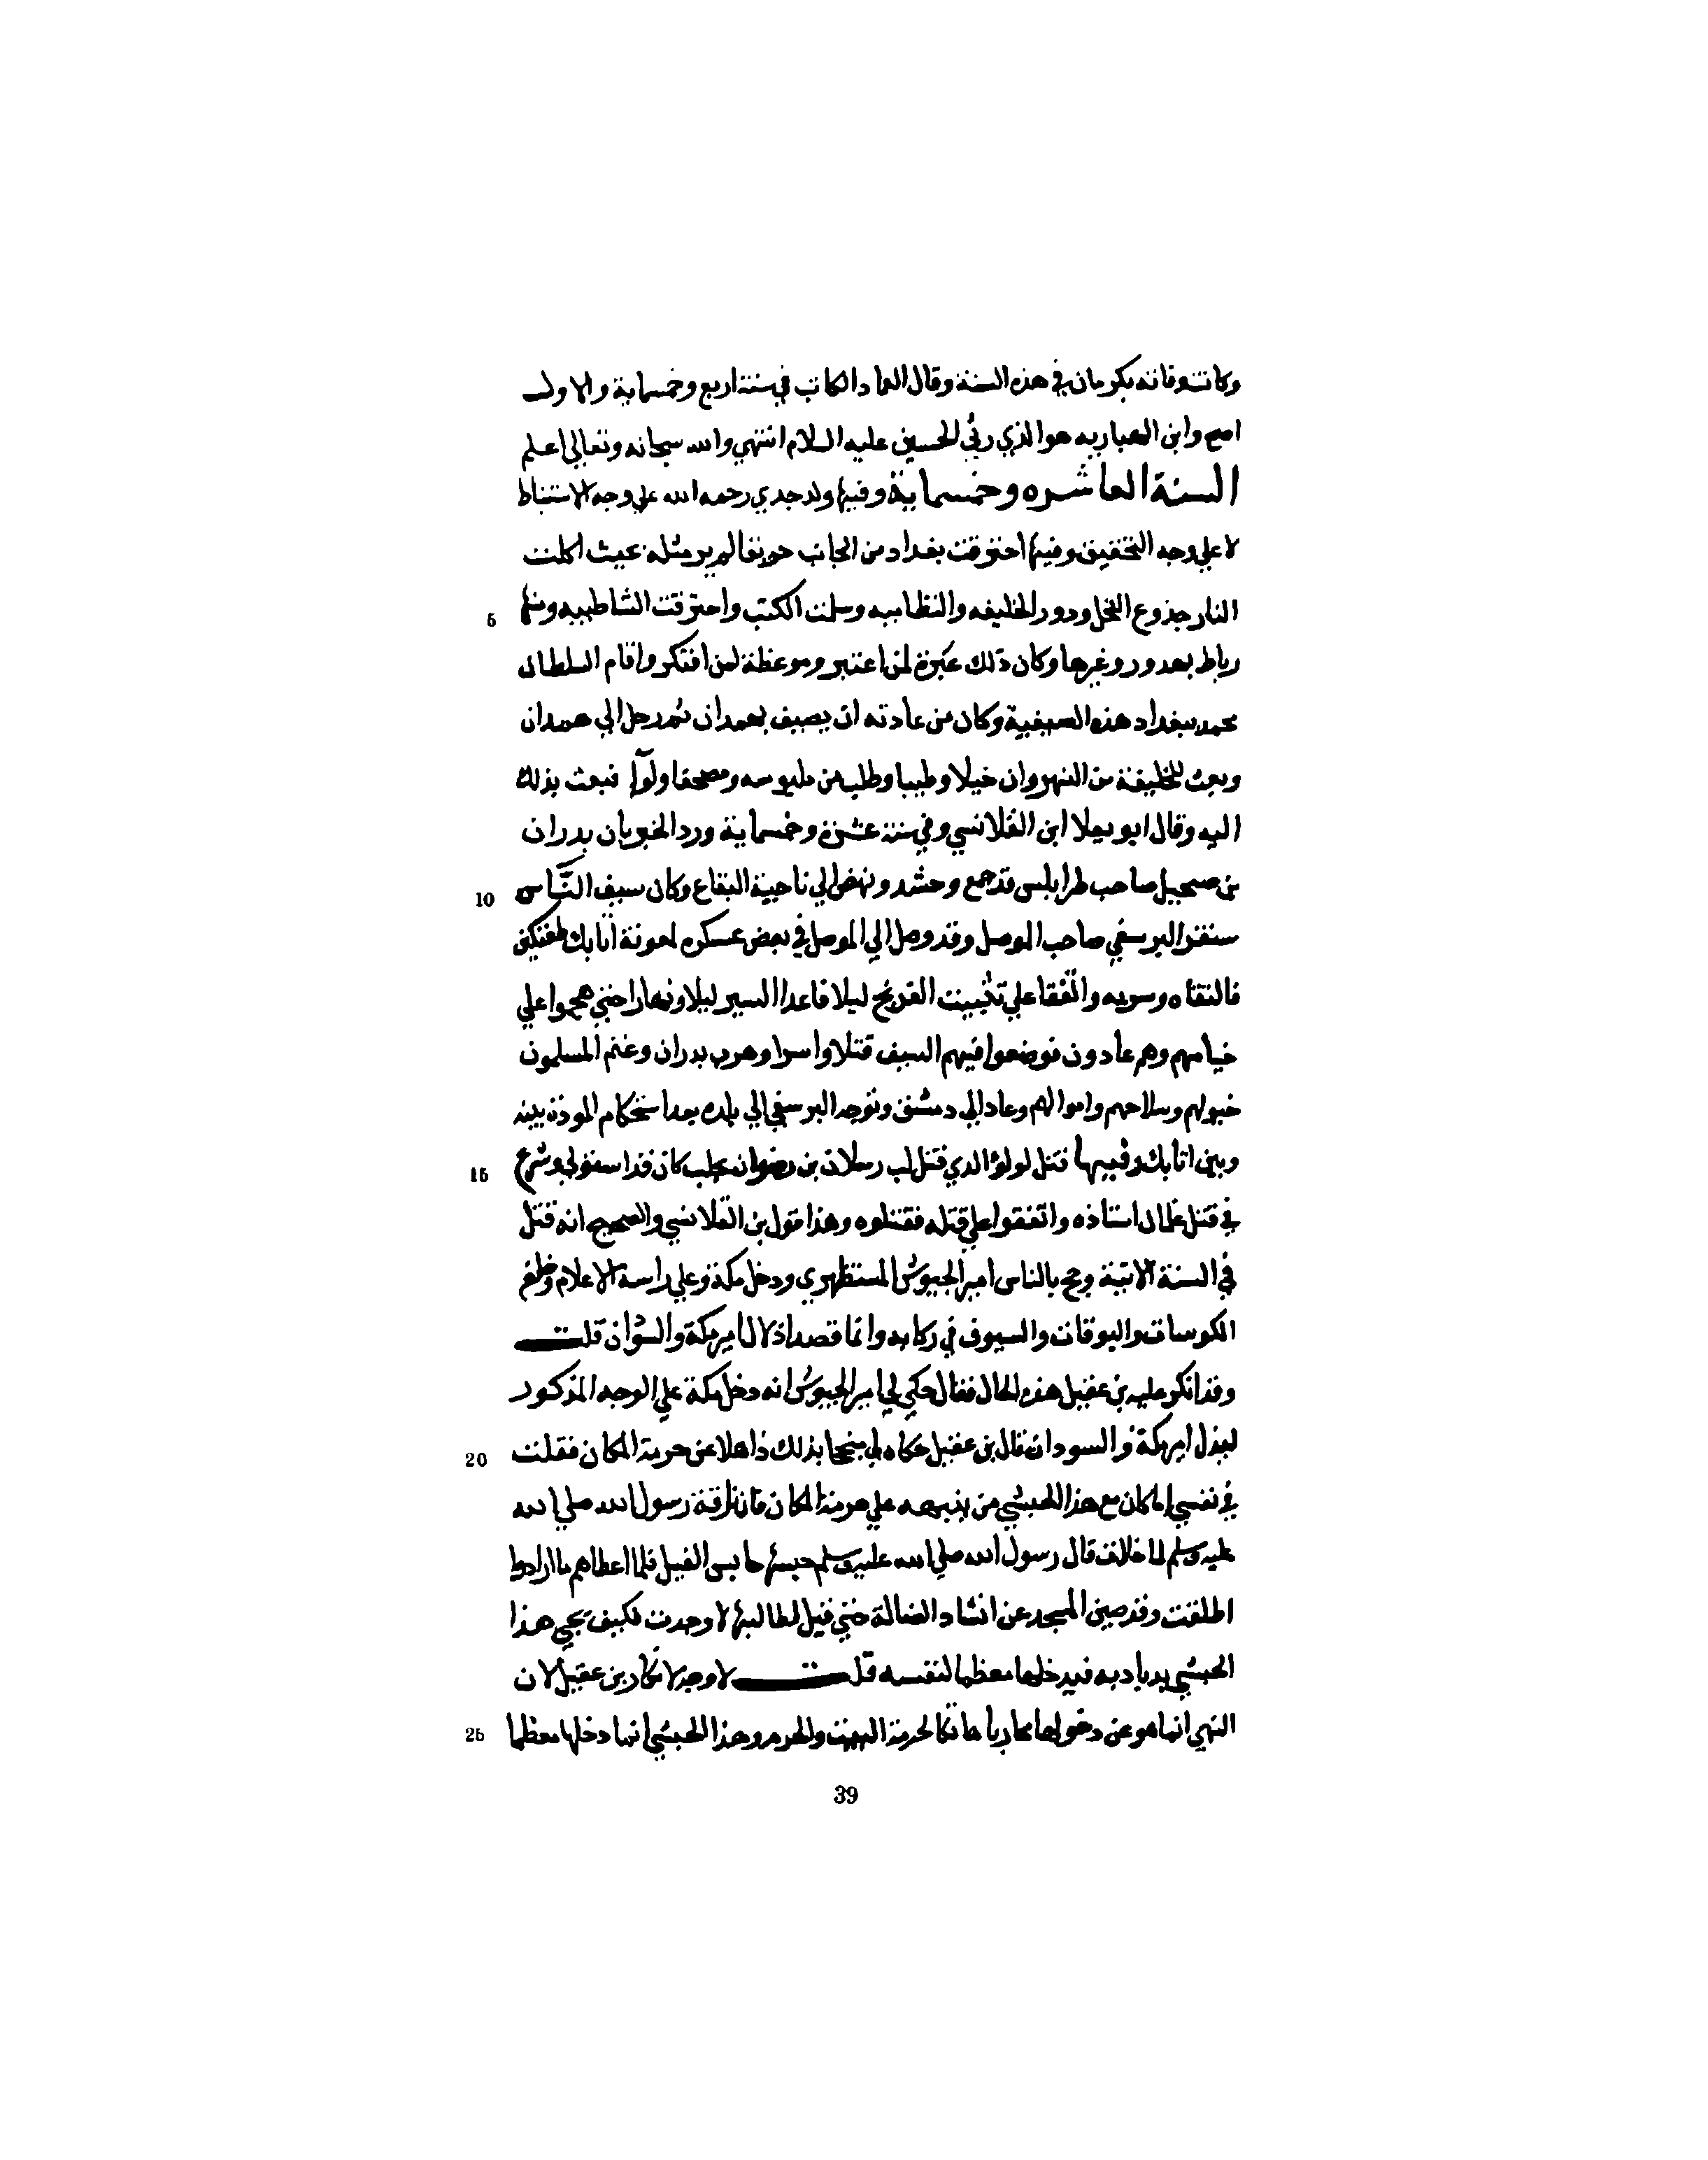 وكانت وفاته بكرمان في هذه السنة وقال العماد الكاتب في سنة اربع وخمسماية والاول
اصح وابن الهباريه هو الذي رثي الحسين عليه السلام انتهي والله سبحانه وتعالي اعلم
السنة العاشره وخمسماية وفيها ولد جدي رحمه الله علي وجه الاستنباط
لا علي وجه التحقيق وفيها احترقت بغداد من الجانب حريقا لم ير مثله بحيث اكلت
النار جذوع النخل ودور الخليفه والنظاميه وسلمت الكتب واحترقت الشاطييه ومنها
رباط بهدور وغيرها وكان ذلك عبرة لمن اعتبر وموعظة لمن افتكر واقام السلطان
محمد ببغداد هذه الصيفية وكان من عادته ان يصيف بهمدان ثم رحل الي همدان
وبعث للخليفة من النهروان خيلا وطيبا وطلب من ملبوسه ومصحفا ولوآ فبعث بذلك
اليه وقال ابو يعلا ابن القلانسي وفي سنة عشرة وخمسماية ورد الخبر بان بدران
بن صنجيل صاحب طرابلس قد جمع وحشد ونهض الي ناحية البقاع وكان سيف النّاس
سنقر البرسقي صاحب الموصل وقد وصل الي الموصل في بعض عسكره لمعونة اتابك طغتكين
فالتقاه وسر به واتّفقا علي تثبيت الفرنج ليلا فاعدا السير ليلا ونهارا حتي هجموا علي
خيامهم وهم عادون فوضعوا فيهم السيف قتلا واسرا وهرب بدران وغنم المسلمون
خيولهم وسلاحهم واموالهم وعاد الي دمشق وتوجه البرسقي الي بلده بعد استحكام الموده بينه
وبين اتابك وفيها قتل لولو الدي قتل لب رسلان بن رضوان بحلب كان قد استولي وشرع
في قتل غلمان استاذه واتفقوا علي قتله فقتلوه وهذا قول بن القلانسي والصحيح انه قتل
في السنة الاتية وحج بالناس امير الجيوش المستظهري ودخل مكة وعلي راسه الاعلام وخلفه
الكوسات والبوقات والسيوف في ركابه وانما قصد اذلال امير مكة والسودان قلت
وقد انكر عليه بن عقيل هذه الحال فقال حكي لي امير الجيوش انه دخل مكة علي الوجه المذكور
ليذل امير مكة والسودان قال بن عقيل حكاه لي متبجحا بذلك ذاهلا عن حرمة المكان فقلت
في نفسي اما كان مع هذا الحبشي من ينبهه علي حرمة المكان فان ناقة رسول الله صلي الله
عليه وسلم لما خلات قال رسول الله صلي الله عليه وسلم حبسها حابس الفيل فلما اعطاهم ما ارادوا
اطلقت وقد صين المسجد عن انشاد الضالة حتي قيل لطالبها لا وجدت فكيف يجي هذا
الحبشي بدبادبه فيدخلها معظما لنفسه قلت لا وجه لانكار بن عقيل لان
النهي انما هو عن دخولها محاربا هاتكا لحرمة البيت والحرم وهذا الحبشي انما دخلها معظما
5
10
15
20
25
39